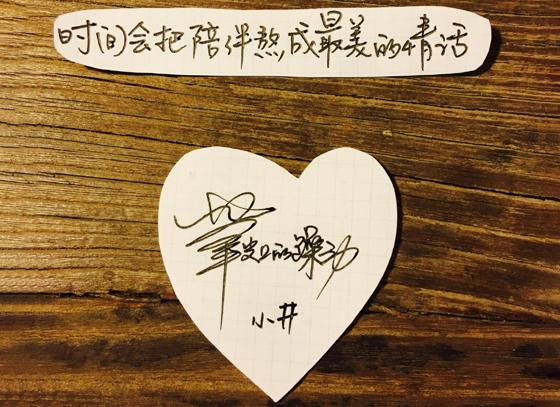 时间会把陪伴熬成最美的情话
的躁动
小井